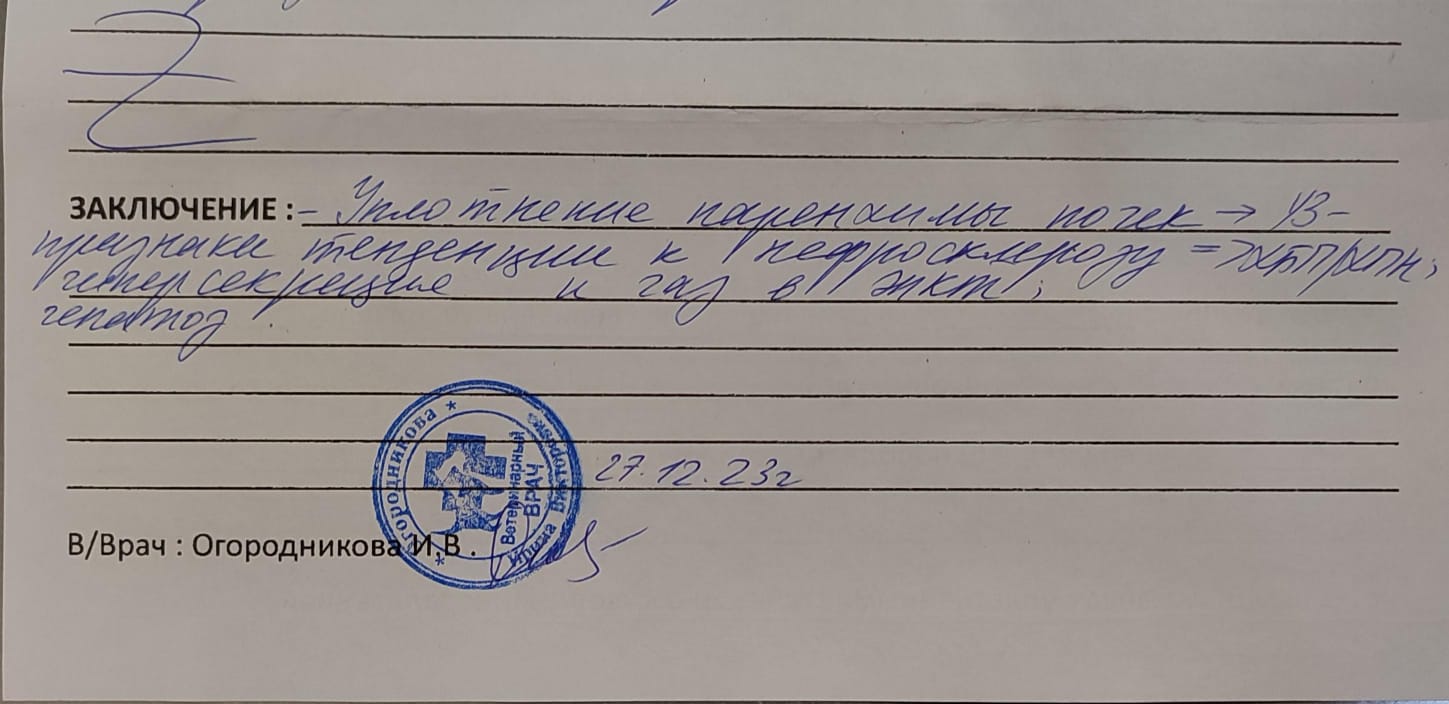 ЗАКЛЮЧЕНИЕ : - Уплотнение паренхимы почек → УЗ-
признаки тенденции к нефросклерозу => ХБП/ХПН;
гиперсекреция и газ в ЖКТ;
гепатоз.
Огородникова * Ирина Викторовна *
Ветеринарный
ВРАЧ
27.12.23г
В/Врач : Огородникова И.В .